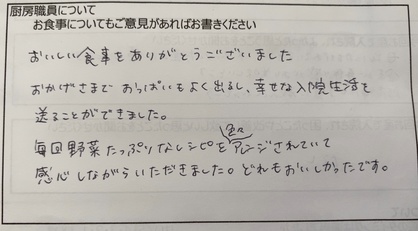 厨房職員について
お食事についてもご意見があればお書きください
おいしい食事をありがとうございました
おかげさまで おっぱいもよく出るし、幸せな入院生活を
送ることができました。
毎回野菜たっぷりなレシピを色々アレンジされていて
感心しながらいただきました。どれもおいしかったです。